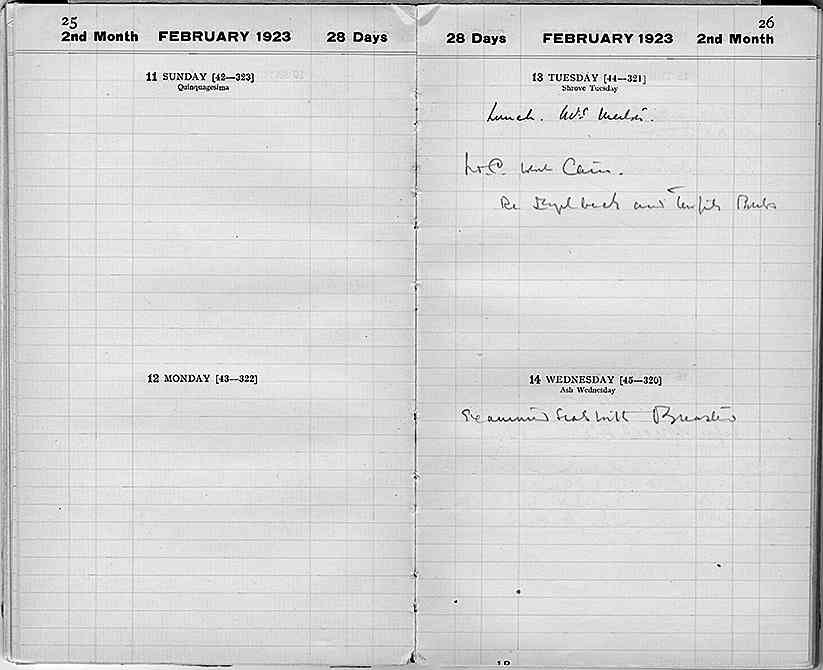 25
2nd Month FEBRUARY 1923 28 Days
11 SUNDAY [42—323]
Quinquagesima
12 MONDAY [43—322]
26
28 Days FEBRUARY 1923 2nd Month
13 TUESDAY [44—321]
Shrove Tuesday
Lunch. Mrs
went Cairo.
Re and Bulbs
14 WEDNESDAY [45—320]
Ash Wednesday
Examined Seals with Breasted